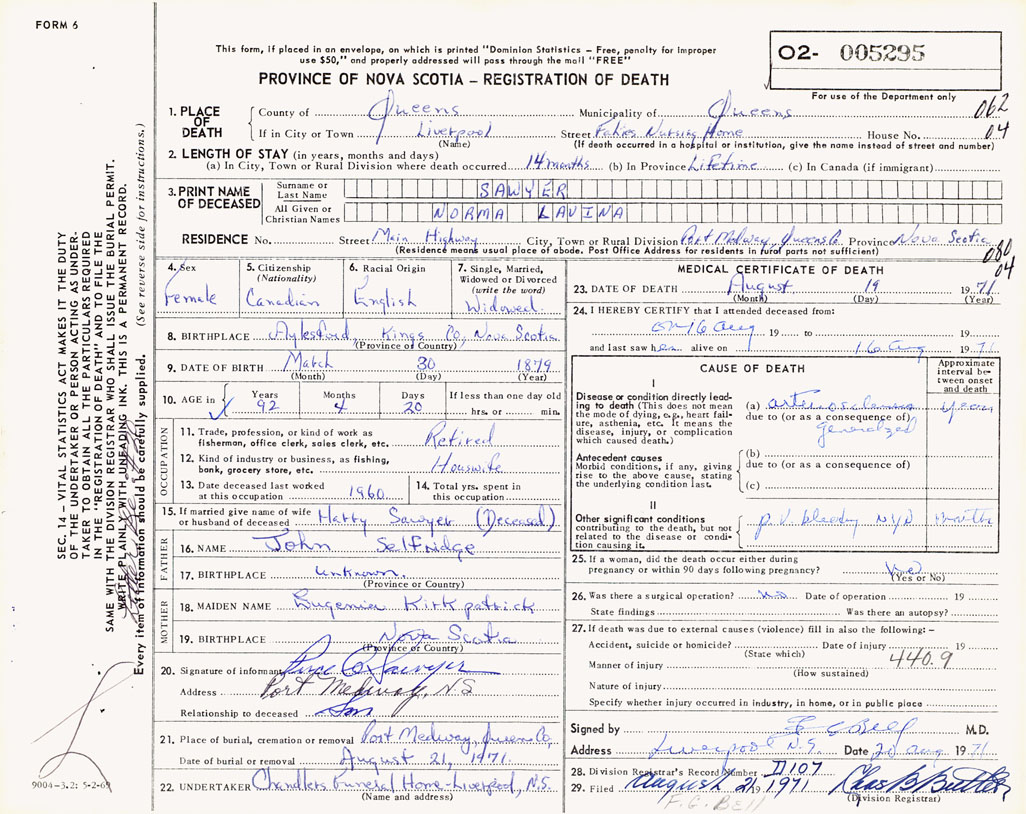 FORM 6
This form, if placed in an envelope, on which is printed "Dominion Statistics - Free, penalty for improper
use $50," and properly addressed will pass through the mail "FREE"
PROVINCE OF NOVA SCOTIA - REGISTRATION OF DEATH
02- 005295
For use of the Department only
062
04
1. PLACE OF DEATH
County of Queens Municipality of Queens
If in City or Town Liverpool Street Nursing Home House No.
(Name) (If death occurred in a hospital or institution, give the name instead of street and number)
2. LENGTH OF STAY (in years, months and days)
(a) In City, Town or Rural Division where death occurred 14 months (b) In Province Lifetime (c) In Canada (if immigrant)
3. PRINT NAME OF DECEASED
Surname or Last Name SAWYER
All Given or Christian Names NORMA LAVINA
RESIDENCE No. Street Main Highway City, Town or Rural Division Port Medway, Queens Co. Province Nova Scotia
(Residence means usual place of abode. Post Office Address for residents in rural parts not sufficient)
04
4. Sex Female
5. Citizenship (Nationality) Canadian
6. Racial Origin English
7. Single, Married, Widowed or Divorced (write the word) Widowed
8. BIRTHPLACE Aylesford Kings Co, Nova Scotia
(Province or Country)
9. DATE OF BIRTH March 30 1879
(Month) (Day) (Year)
10. AGE in Years 92 Months 4 Days 20 If less than one day old hrs. or min.
OCCUPATION
11. Trade, profession, or kind of work as fisherman, office clerk, sales clerk, etc. Retired
12. Kind of industry or business, as fishing, bank, grocery store, etc. Houswife
13. Date deceased last worked at this occupation 1960
14. Total yrs. spent in this occupation
15. If married give name of wife or husband of deceased Harry Sawyer (Deceased)
FATHER
16. NAME John Selfridge
17. BIRTHPLACE Unknown
(Province or Country)
MOTHER
18. MAIDEN NAME Eugenia Kirkpatrick
19. BIRTHPLACE Nova Scotia
(Province or Country)
20. Signature of informant Sawyer
Address Port Medway, N.S
Relationship to deceased Son
21. Place of burial, cremation or removal Port Medway, Queens Co,
Date of burial or removal August 21, 1971.
22. UNDERTAKER Chandlers Funeral Home - Liverpool, N.S.
(Name and address)
MEDICAL CERTIFICATE OF DEATH
23. DATE OF DEATH August 19 1971
(Month) (Day) (Year)
24. I HEREBY CERTIFY that I attended deceased from:
on 16 Aug 19 to 19
and last saw her alive on 16 Aug 1971
CAUSE OF DEATH
Approximate interval between onset and death
I
Disease or condition directly leading to death (This does not mean the mode of dying, e.g., heart failure, asthenia, etc. It means the disease, injury, or complication which caused death.)
(a) years
due to (or as a consequence of) generalized
Antecedent causes
Morbid conditions, if any, giving rise to the above cause, stating the underlying condition last.
(b)
due to (or as a consequence of)
(c)
II
Other significant conditions
contributing to the death, but not related to the disease or condition causing it.
p.v bleeding NYD months
25. If a woman, did the death occur either during
pregnancy or within 90 days following pregnancy?
(Yes or No)
26. Was there a surgical operation? no Date of operation 19
State findings Was there an autopsy?
27. If death was due to external causes (violence) fill in also the following:-
Accident, suicide or homicide? Date of injury 19
(State which)
440.9
Manner of injury
(How sustained)
Nature of injury
Specify whether injury occurred in industry, in home, or in public place
Signed by Bell M.D.
Address Liverpool N.S. Date 20 Aug 1971
28. Division Registrar's Record Number D107
29. Filed August 21 19 1971 Chas B Buttler
(Division Registrar)
F.G. BELL
SEC. 14 - VITAL STATISTICS ACT MAKES IT THE DUTY
OF THE UNDERTAKER OR PERSON ACTING AS UNDER-
TAKER TO OBTAIN ALL THE PARTICULARS REQUIRED
IN THE "REGISTRATION OF DEATH" AND TO FILE THE
SAME WITH THE DIVISION REGISTRAR WHO SHALL ISSUE THE BURIAL PERMIT.
WRITE PLAINLY WITH UNFADING INK. THIS IS A PERMANENT RECORD.
Every item of information should be carefully supplied. (See reverse side for instructions.)
9004-3.2: 5-2-69